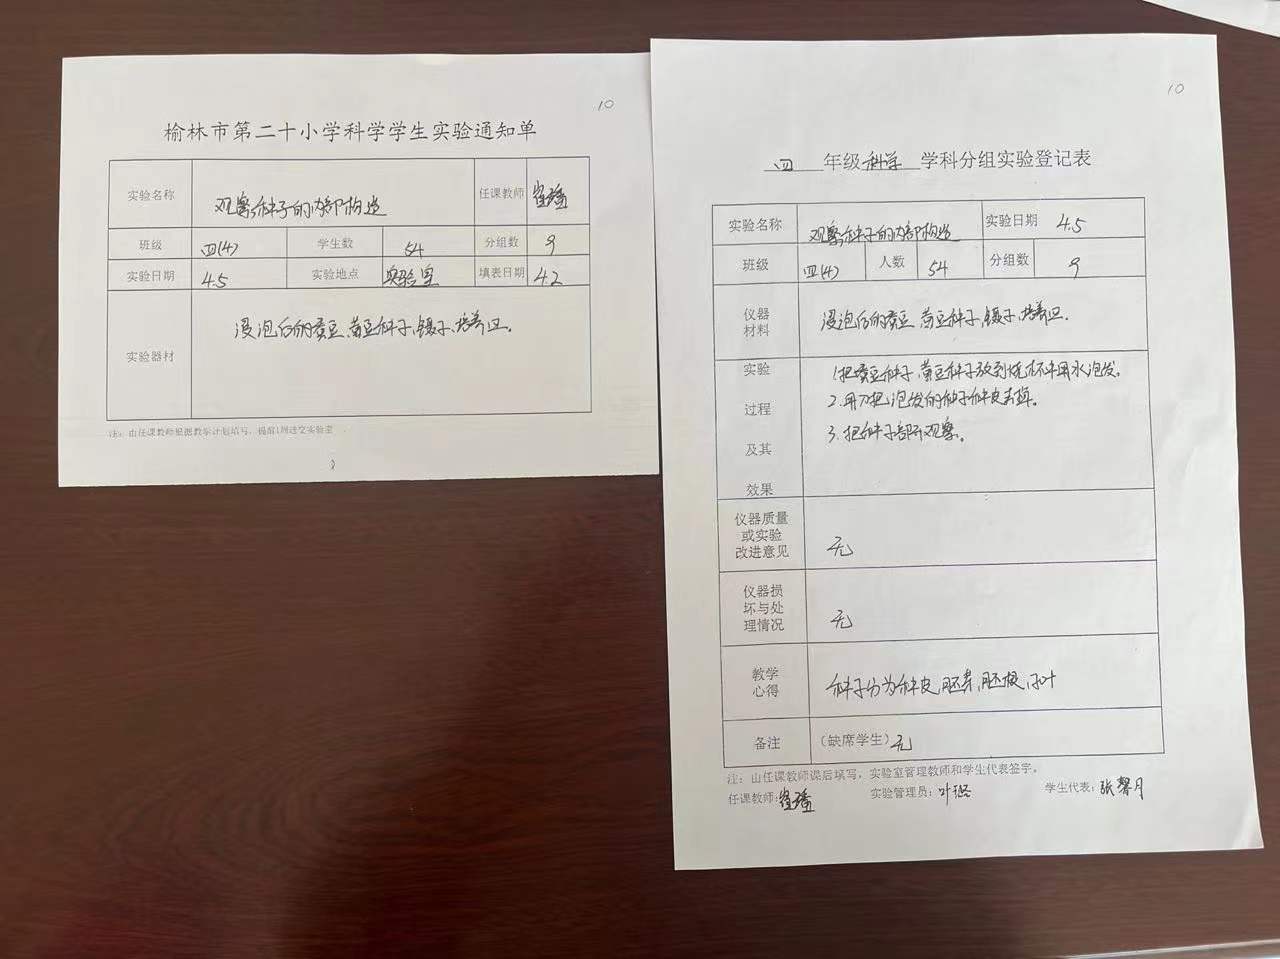 10
榆林市第二十小学科学学生实验通知单
实验名称 观察种子的内部构造 任课教师
班级 四(4) 学生数 54 分组数 9
实验日期 4.5 实验地点 实验室 填表日期 4.2
实验器材 浸泡后的蚕豆、黄豆种子、镊子、培养皿。
注：由任课教师根据教学计划填写，提前1周送交实验室
10
四 年级 科学 学科分组实验登记表
实验名称 观察种子的内部构造 实验日期 4.5
班级 四(4) 人数 54 分组数 9
仪器材料 浸泡后的蚕豆、黄豆种子、镊子、培养皿。
实验过程及其效果
1.把蚕豆种子、黄豆种子放到烧杯中用水泡发。
2.用刀把泡发的种子种皮去掉。
3.把种子部开观察。
仪器质量或实验改进意见 无
仪器损坏与处理情况 无
教学心得 种子分为种皮,胚芽,胚根,子叶
备注 (缺席学生) 无
注：由任课教师课后填写，实验室管理教师和学生代表签字。
任课教师: 实验管理员: 学生代表: 张馨月